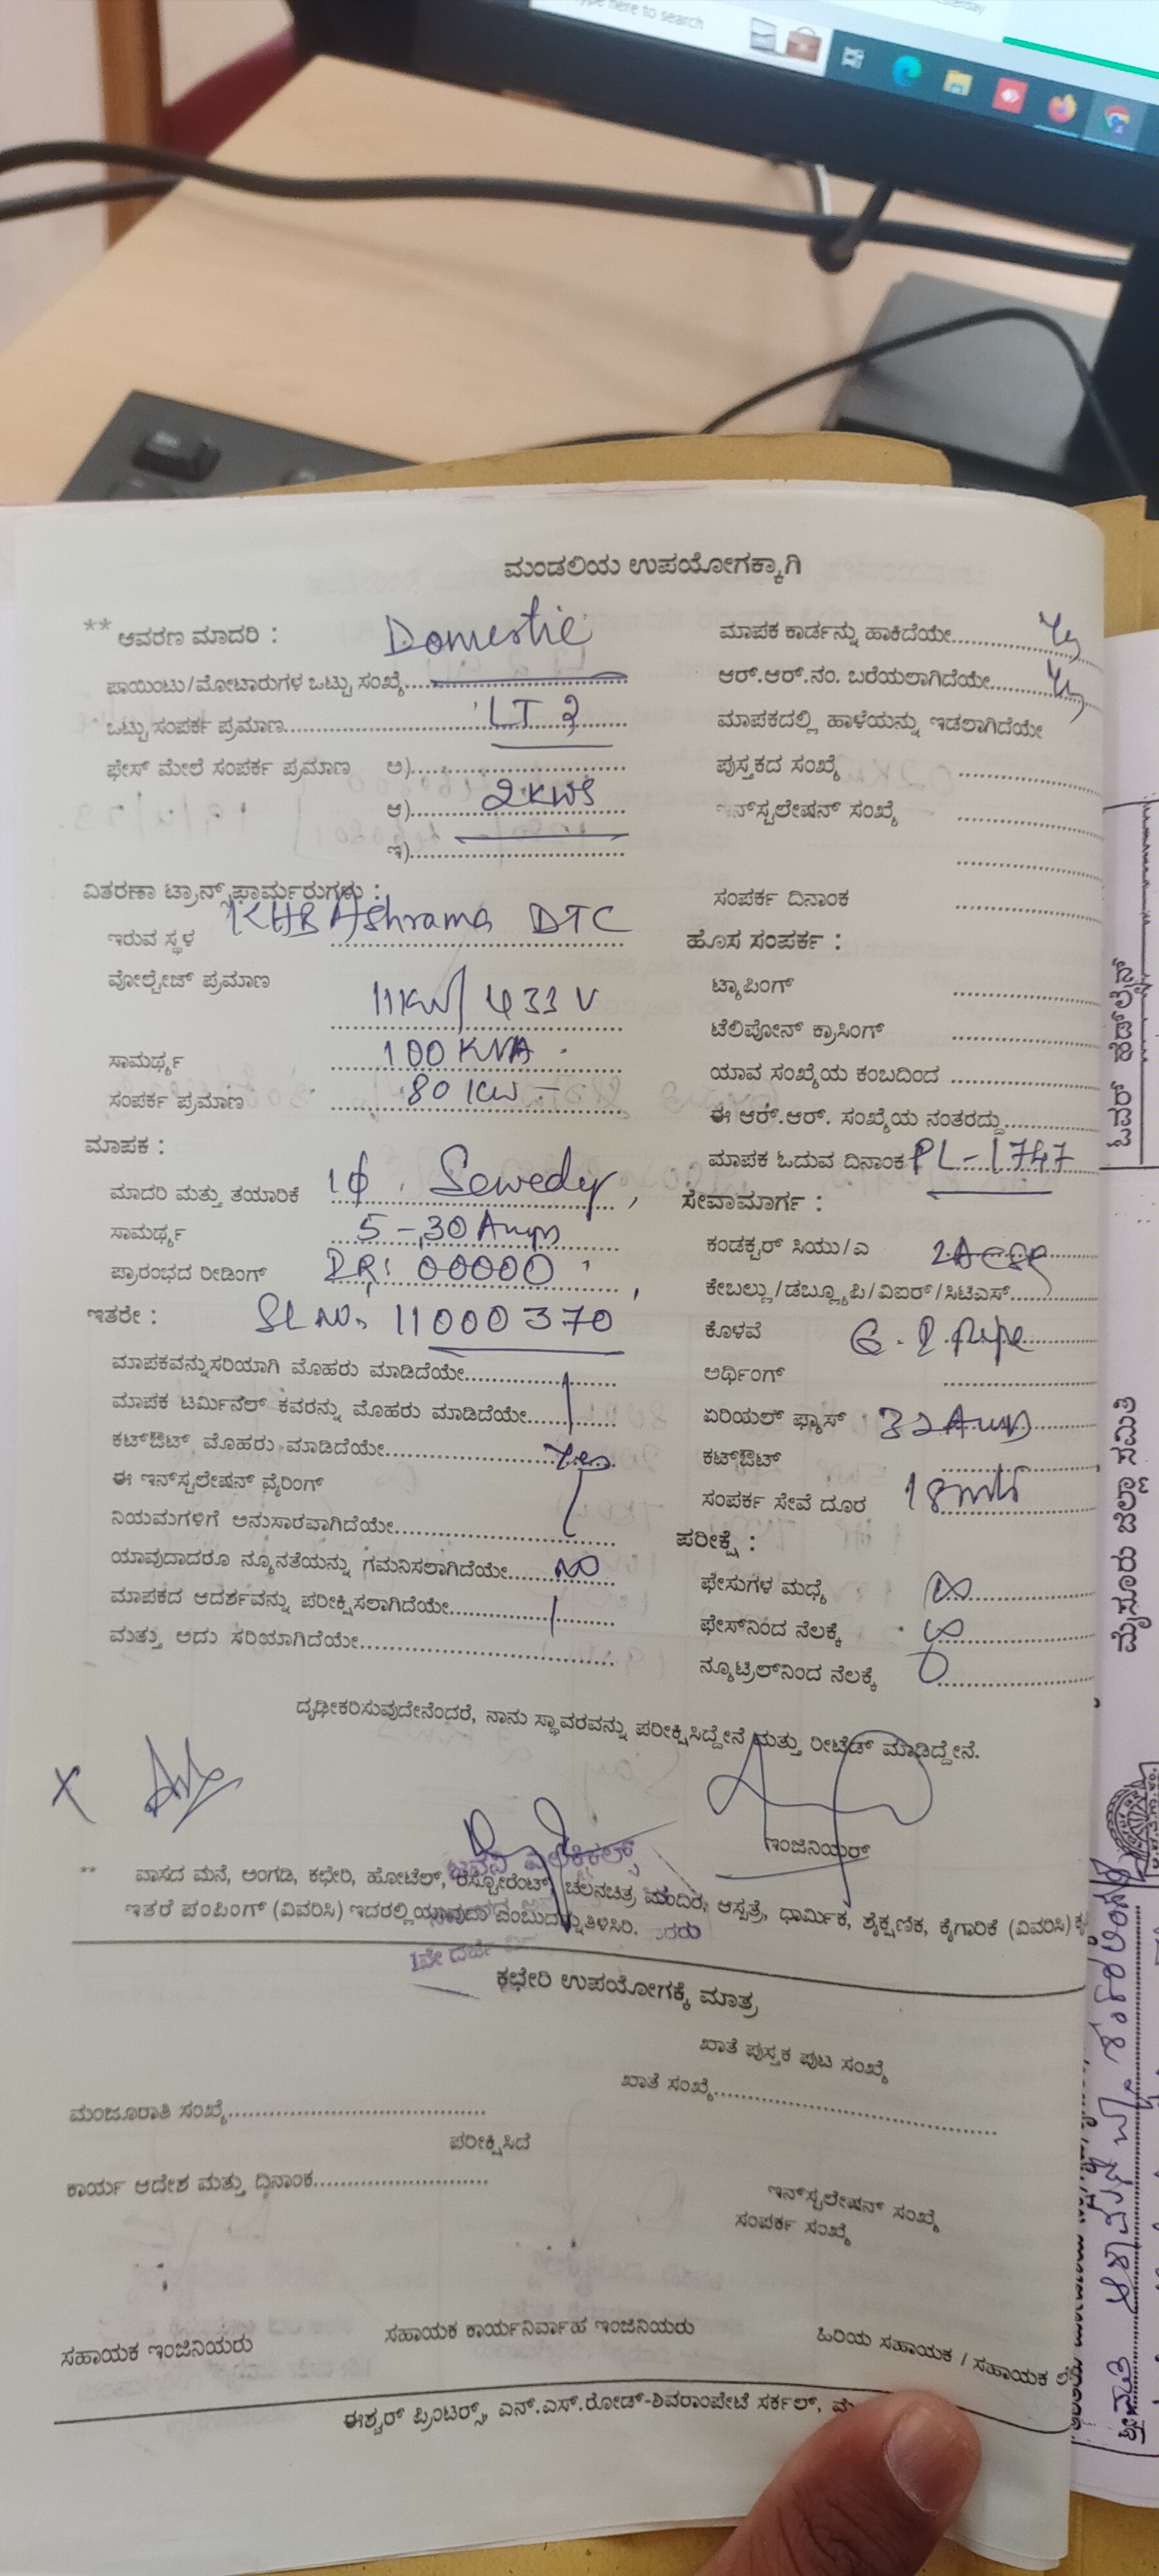 Type here to search
ಮಂಡಲಿಯ ಉಪಯೋಗಕ್ಕಾಗಿ
** ಆವರಣ ಮಾದರಿ : Domestic
ಪಾಯಿಂಟು/ಮೋಟಾರುಗಳ ಒಟ್ಟು ಸಂಖ್ಯೆ
ಒಟ್ಟು ಸಂಪರ್ಕ ಪ್ರಮಾಣ LT 2
ಫೇಸ್ ಮೇಲೆ ಸಂಪರ್ಕ ಪ್ರಮಾಣ ಅ)
ಆ) 2KWS
ಇ)
ವಿತರಣಾ ಟ್ರಾನ್ಸ್‌ಫಾರ್ಮರುಗಳು :
ಇರುವ ಸ್ಥಳ KHB Ashrama DTC
ವೋಲ್ಟೇಜ್ ಪ್ರಮಾಣ 11KV/433V
ಸಾಮರ್ಥ್ಯ 100 KVA
ಸಂಪರ್ಕ ಪ್ರಮಾಣ 80 KW
ಮಾಪಕ :
ಮಾದರಿ ಮತ್ತು ತಯಾರಿಕೆ 1ϕ, Sewedy,
ಸಾಮರ್ಥ್ಯ 5-30 Amps
ಪ್ರಾರಂಭದ ರೀಡಿಂಗ್ 00000
ಇತರೇ : Sl No. 11000370
ಮಾಪಕವನ್ನು ಸರಿಯಾಗಿ ಮೊಹರು ಮಾಡಿದೆಯೇ
ಮಾಪಕ ಟರ್ಮಿನಲ್ ಕವರನ್ನು ಮೊಹರು ಮಾಡಿದೆಯೇ
ಕಟ್‌ಔಟ್ ಮೊಹರು ಮಾಡಿದೆಯೇ Yes
ಈ ಇನ್‌ಸ್ಟಲೇಷನ್ ವೈರಿಂಗ್
ನಿಯಮಗಳಿಗೆ ಅನುಸಾರವಾಗಿದೆಯೇ
ಯಾವುದಾದರೂ ನ್ಯೂನತೆಯನ್ನು ಗಮನಿಸಲಾಗಿದೆಯೇ NO
ಮಾಪಕದ ಆದರ್ಶವನ್ನು ಪರೀಕ್ಷಿಸಲಾಗಿದೆಯೇ
ಮತ್ತು ಅದು ಸರಿಯಾಗಿದೆಯೇ
ಮಾಪಕ ಕಾರ್ಡನ್ನು ಹಾಕಿದೆಯೇ Yes
ಆರ್.ಆರ್.ನಂ. ಬರೆಯಲಾಗಿದೆಯೇ Yes
ಮಾಪಕದಲ್ಲಿ ಹಾಳೆಯನ್ನು ಇಡಲಾಗಿದೆಯೇ
ಪುಸ್ತಕದ ಸಂಖ್ಯೆ
ಇನ್‌ಸ್ಟಲೇಷನ್ ಸಂಖ್ಯೆ
ಸಂಪರ್ಕ ದಿನಾಂಕ
ಹೊಸ ಸಂಪರ್ಕ :
ಟ್ಯಾಪಿಂಗ್
ಟೆಲಿಪೋನ್ ಕ್ರಾಸಿಂಗ್
ಯಾವ ಸಂಖ್ಯೆಯ ಕಂಬದಿಂದ
ಈ ಆರ್.ಆರ್. ಸಂಖ್ಯೆಯ ನಂತರದ್ದು
ಮಾಪಕ ಓದುವ ದಿನಾಂಕ PL-1747
ಸೇವಾಮಾರ್ಗ :
ಕಂಡಕ್ಟರ್ ಸಿಯು/ಎ
ಕೇಬಲ್ಲು/ಡಬ್ಲ್ಯೂಪಿ/ವಿಐರ್/ಸಿಟಿಎಸ್
ಕೊಳವೆ G.I pipe
ಅರ್ಥಿಂಗ್
ಏರಿಯಲ್ ಫ್ಯೂಸ್ 32 Amp
ಕಟ್‌ಔಟ್
ಸಂಪರ್ಕ ಸೇವೆ ದೂರ 18 mts
ಪರೀಕ್ಷೆ :
ಫೇಸುಗಳ ಮಧ್ಯೆ ∞
ಫೇಸ್‌ನಿಂದ ನೆಲಕ್ಕೆ ∞
ನ್ಯೂಟ್ರಲ್‌ನಿಂದ ನೆಲಕ್ಕೆ 0
ದೃಢೀಕರಿಸುವುದೇನೆಂದರೆ, ನಾನು ಸ್ಥಾವರವನ್ನು ಪರೀಕ್ಷಿಸಿದ್ದೇನೆ ಮತ್ತು ರೀಟೆಡ್ ಮಾಡಿದ್ದೇನೆ.
ಇಂಜಿನಿಯರ್
** ವಾಸದ ಮನೆ, ಅಂಗಡಿ, ಕಛೇರಿ, ಹೋಟೆಲ್, ರೆಸ್ಟೋರೆಂಟ್, ಚಲನಚಿತ್ರ ಮಂದಿರ, ಆಸ್ಪತ್ರೆ, ಧಾರ್ಮಿಕ, ಶೈಕ್ಷಣಿಕ, ಕೈಗಾರಿಕೆ (ವಿವರಿಸಿ)
ಇತರೆ ಪಂಪಿಂಗ್ (ವಿವರಿಸಿ) ಇದರಲ್ಲಿ ಯಾವುದು ಎಂಬುದನ್ನು ತಿಳಿಸಿರಿ.
ಕಛೇರಿ ಉಪಯೋಗಕ್ಕೆ ಮಾತ್ರ
ಖಾತೆ ಪುಸ್ತಕ ಪುಟ ಸಂಖ್ಯೆ
ಖಾತೆ ಸಂಖ್ಯೆ
ಮಂಜೂರಾತಿ ಸಂಖ್ಯೆ
ಪರೀಕ್ಷಿಸಿದೆ
ಕಾರ್ಯ ಆದೇಶ ಮತ್ತು ದಿನಾಂಕ
ಇನ್‌ಸ್ಟಲೇಷನ್ ಸಂಖ್ಯೆ
ಸಂಪರ್ಕ ಸಂಖ್ಯೆ
ಸಹಾಯಕ ಇಂಜಿನಿಯರು ಸಹಾಯಕ ಕಾರ್ಯನಿರ್ವಾಹ ಇಂಜಿನಿಯರು ಹಿರಿಯ ಸಹಾಯಕ / ಸಹಾಯಕ
ಈಶ್ವರ್ ಪ್ರಿಂಟರ್ಸ್, ಎನ್.ಎಸ್.ರೋಡ್-ಶಿವರಾಂಪೇಟೆ ಸರ್ಕಲ್,
ಓವರ್ ಹೆಡ್‌ಲೈನ್
ಮೈಸೂರು ಜಿಲ್ಲಾ ಸಮಿತಿ